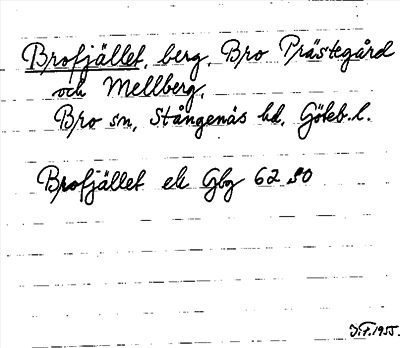 Brofjället, berg, Bro Prästegård
och Mellberg.
Bro sn, Stångenäs hd, Göteb. l.
Brofjället ek Gbg 62 SO
J.F. 1955.